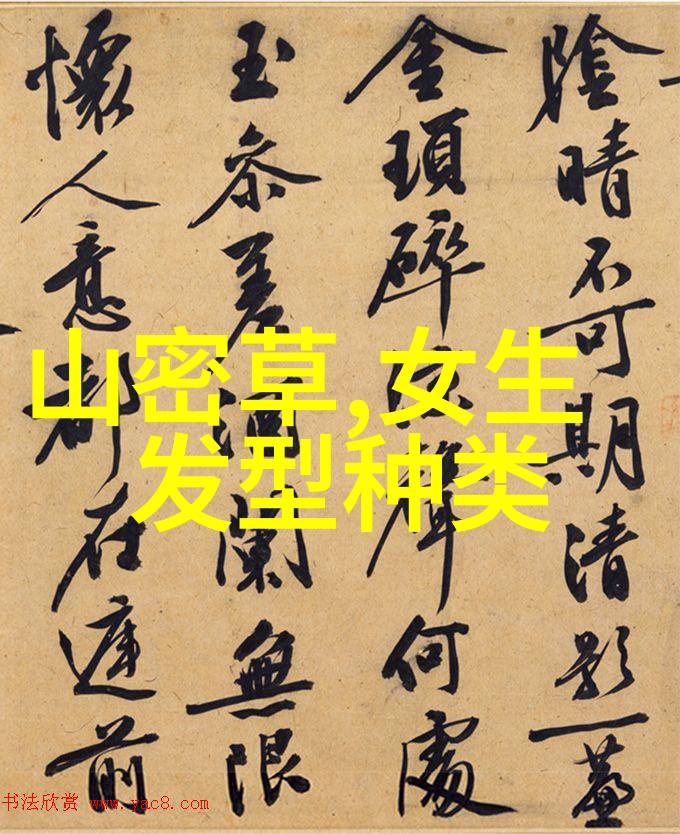 陰晴不可期清影一
金瑣碎風聲何處
玉參差酒闌無限
懷人意都在庭前
山密草,女生
发型种类
书法欣赏 www.yac8.com